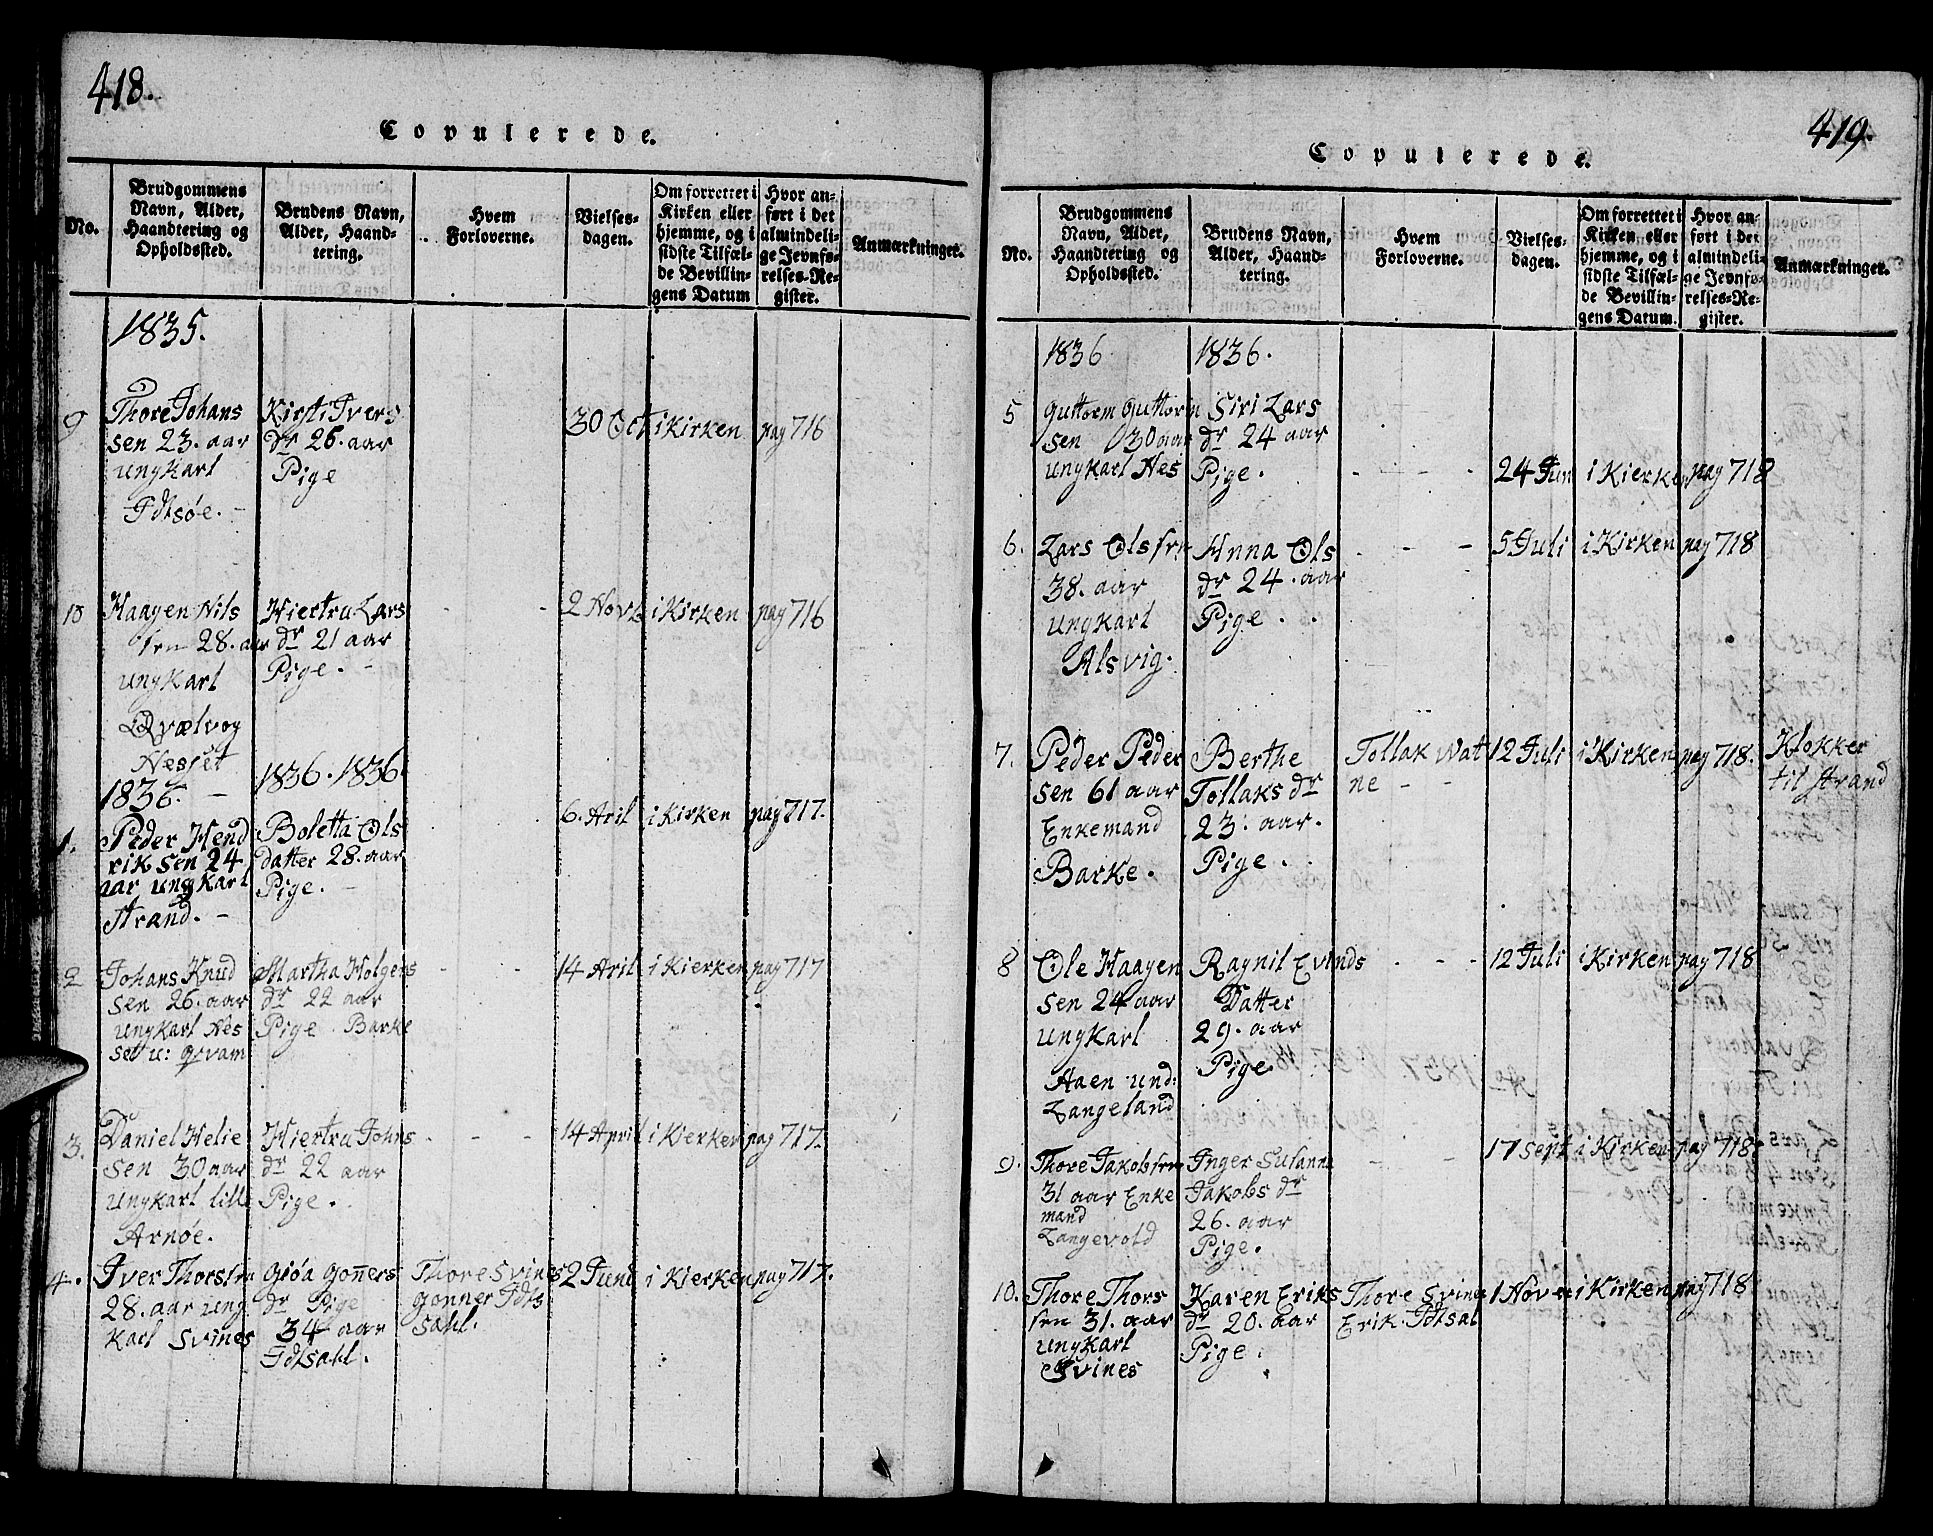 418.
Copulerede.
No.
Brudgommens
Navn, Alder,
Haandtering og
Opholdssted.
Brudens Navn,
Alder, Haand-
tering.
Hvem
Forloverne.
Vielses-
dagen.
Om forrettet i
Kirken eller
hjemme, og i
sidste Tilfæl-
de Bevillin-
gens Datum
Hvor an-
ført i det
almindeli-
ge Jevnfø-
relses-Re-
gister.
Anmærkninger.
1835.
9
Thore Johans
sen 23. aar
ungkarl
Idtsøe. -
Kirsti Ivers
dr 26. aar
Pige
30 Oct
i Kirken
pag 716
10
Haagen Nils
sen 28. aar
ungkarl
Qvælvog
Nesset
Hiertru Lars
dr 21 aar
Pige. -
- -
2 Novb
i Kirken
pag 716
1836. -
1836. 1836
1.
Peder Hend
rik sen 24
aar ungkarl
Strand. -
Boletta Ols
datter 28. aar
Pige. -
6. Aril
i Kirken
pag 717.
2
Johans Knud
sen 26. aar
ungkarl Nes
set u: qvam
Martha Holgers
dr 22 aar
Pige Barke
- -
14 Aril
i Kierken
pag 717
3.
Daniel Helie
sen 30 aar
ungkarl lille
Arnøe.
Hiertru Johns
dr 22 aar
Pige.
- - -
14 April
i Kierken
pag 717.
4.
Iver Thorsten
28. aar ung
karl Svines
Giøa Goners
dr Pige
34 aar
Idtsahl.
Thore Svines
gonner Idts
sahl.
2 Juni
i Kierken
pag 717.
419.
Copulerede.
No.
Brudgommens
Navn, Alder,
Haandtering og
Opholdssted.
Brudens Navn,
Alder, Haand-
tering.
Hvem
Forloverne.
Vielses-
dagen.
Om forrettet i
Kirken eller
hjemme, og i
sidste Tilfæl-
de Bevillin-
gens Datum.
Hvor an-
ført i det
almindeli-
ge Jevnfø-
relses-Re-
gister.
Anmærkninger.
1836
1836.
5
Guttorm Guttorm
sen 30 aar
ungkarl Nes
Siri Lars
dr 24 aar
Pige.
- - -
24 Jun
i Kierken
pag 718
6.
Lars Olssen
38. aar
ungkarl
Alsvig.
Anna Ols
dr 24. aar
Pige.
- - -
5 Juli
i Kirken
pag 718
7.
Peder Peder
sen 61 aar
Enkemand
Barke.
Berthe
Tollaks dr
23. aar.
Pige.
Tollak Wat
ne - -
12 Juli
i Kirken
pag 718.
Klokker
til Strand
8
Ole Haagen
sen 24 aar
ungkarl
Aaen und:
Langeland
Ragnil Evinds
Datter
29. aar
Pige
- - -
12 Juli
i Kirken
pag 718
9.
Thore Jakobsen
31 aar Enke
mand
Langevold
Inger Susanne
Jakobs dr
26. aar
Pige.
- - -
17 Sept
i Kirken
pag 718.
10.
Thore Thors
sen 31. aar
ungkarl
Svines
Karen Eriks
dr 20. aar
Pige.
Thore Svines
Erik Idtsal
1 Nov
i Kirken
pag 718